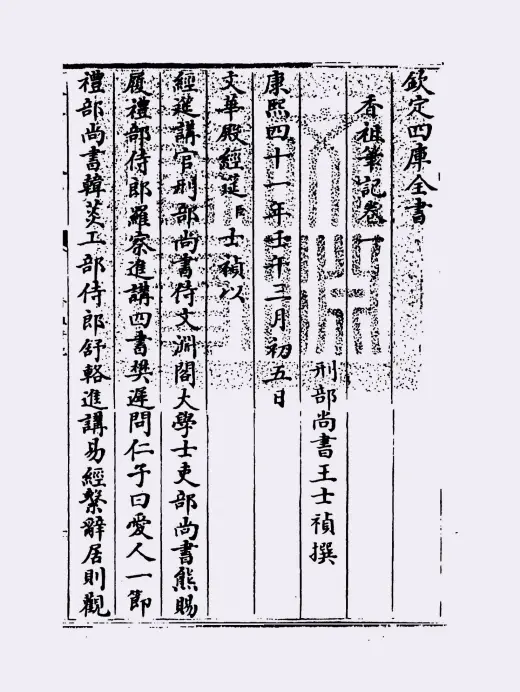 欽定四庫全書
香祖筆記卷一
刑部尚書王士禎撰
康熙四十一年壬午三月初五日
文華殿經筵臣士禎以
經筵講官刑部尚書侍文淵閣大學士吏部尚書熊賜
履禮部侍郎羅察進講四書樊遲問仁子曰愛人一節
禮部尚書韓菼工部侍郎舒輅進講易經繫辭居則觀